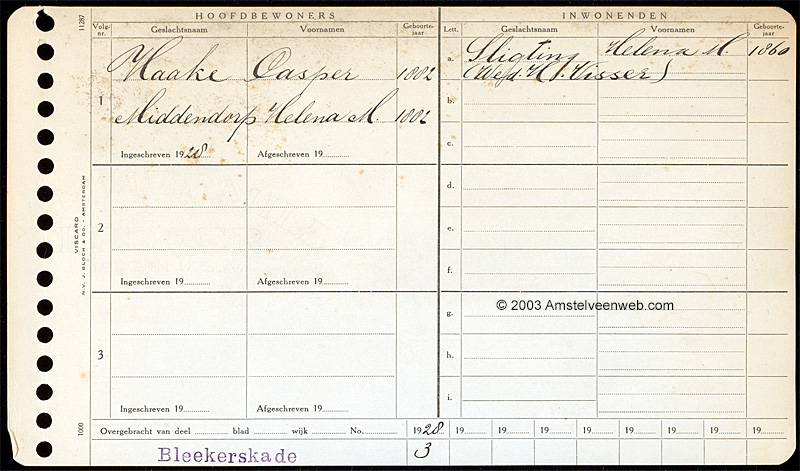 11287
HOOFDBEWONERS
INWONENDEN
Volg-nr.
Geslachtsnaam
Voornamen
Geboorte-jaar
Lett.
Geslachtsnaam
Voornamen
Geboorte-jaar
1
Haake Casper 1882
Middendorp Helena M. 1882
Ingeschreven 1928
Afgeschreven 19
a. Sligting Helena M. 1860
(Wed. H. J. Visser)
b.
c.
2
Ingeschreven 19
Afgeschreven 19
d.
e.
f.
3
Ingeschreven 19
Afgeschreven 19
g.
h.
i.
© 2003 Amstelveenweb.com
VISCARD
N.V. J. BLOCH & CO. - AMSTERDAM
1000
Overgebracht van deel blad wijk No. 1928 19 19 19 19 19 19 19 19
Bleekerskade 3